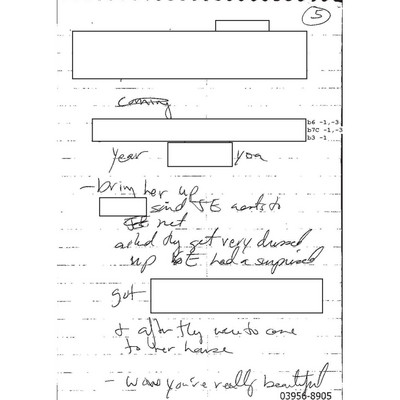 5
coming
b6 -1,-3
b7C -1,-3
b3 -1
year you
- bring her up
said JE wants to
JE met
asked they get very dressed
up JE had a surprise
got
+ after they were to come
to her house
- wow you're really beautiful
03956-8905